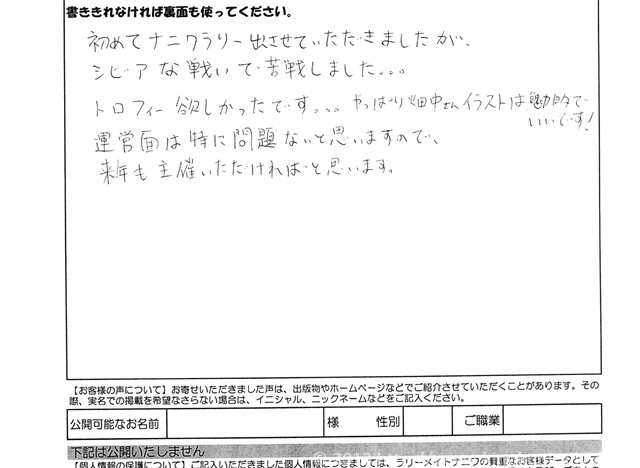 書ききれなければ裏面も使ってください。
初めてナニワラリー出させていただきましたが、
シビアな戦いで苦戦しました。。。
トロフィー欲しかったです。。。やっぱり畑中さんイラストは魅力的で
いいです!
運営面は特に問題ないと思いますので、
来年も主催いただければと思います。
【お客様の声について】お寄せいただきました声は、出版物やホームページなどでご紹介させていただくことがあります。その
際、実名での掲載を希望なさらない場合は、イニシャル、ニックネームなどをご記入ください。
公開可能なお名前 様 性別 ご職業
下記は公開いたしません
【個人情報の保護について】ご記入いただきました個人情報につきましては、ラリーメイトナニワの貴重なお客様データとして